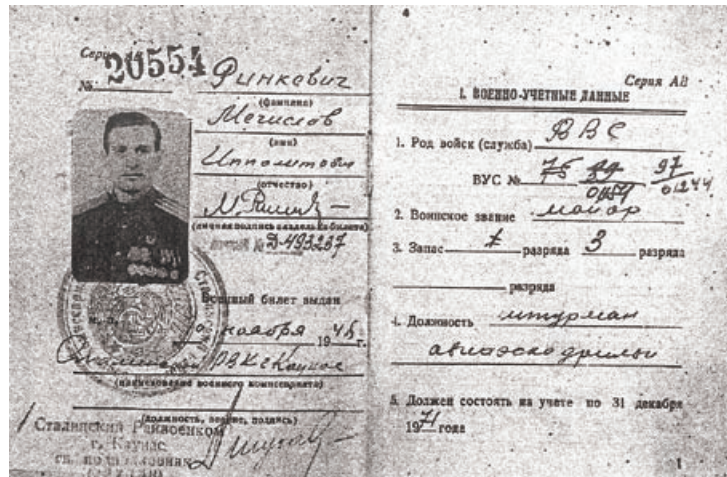 Серия АВ
№ 20554
Финкевич
(фамилия)
Мечислав
(имя)
Ипполитович
(отчество)
(личная подпись владельца билета)
№ Д-493237
Военный билет выдан
ноября 1948 г.
Сталинский РВК г. Каунас
(наименование военного комиссариата)
(должность, звание, подпись)
Сталинский Райвоенком
г. Каунас
4
Серия АВ
I. ВОЕННО-УЧЕТНЫЕ ДАННЫЕ
1. Род войск (служба) ВВС
ВУС № 75 97
01244
2. Воинское звание майор
3. Запас разряда 3 разряда
разряда
4. Должность штурман
авиаэскадрильи
5. Должен состоять на учете по 31 декабря
1971 года
1